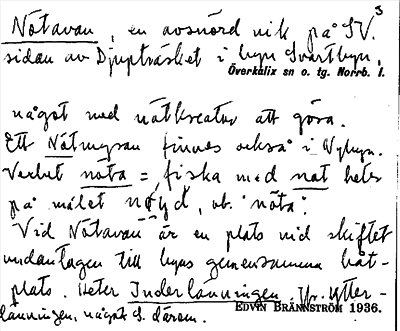 3
Nötavan, en avsnörd vik på SV.
sidan av Djupträsket i byn Svartbyn,
Överkalix sn o. tg. Norrb. l.
något med nötkreatur att göra.
Ett Nötmyran finnes också i Nybyn.
Verbet nöta = fiska med not heter
på målet nöyd, ob. "nöta".
Vid Nötavan är en plats vid skiftet
undantagen till byns gemensamma båt-
plats. Heter Inderlänningen. Jfr. Ytter-
länningen, något S. därom.
EDVIN BRÄNNSTRÖM 1936.